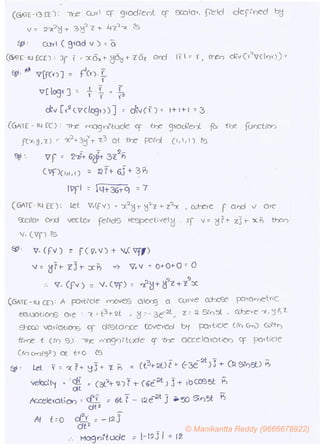 (GATE-13 EE): The curl of gradient of scalar field defined by
v = 2x²y + 3y²z + 4z²x is
Sol: curl (grad v) = ō
(GATE-14 ECE): If r̄ = xāx + yāy + zāz and |r̄| = r, then div(r²∇(log r)) =
Sol: ∇[f(r)] = f'(r) · r̄/r
∇[log r] = 1/r · r̄/r = r̄/r²
div [r²(∇(log r))] = div(r̄) = 1+1+1 = 3
(GATE-14 EC): The magnitude of the gradient for the function
f(x,y,z) = x²+3y²+z³ at the point (1,1,1) is
Sol: ∇f = 2xī+6yj̄+3z²n̄
(∇f)(1,1,1) = 2ī+6j̄+3n̄
|∇f| = √4+36+9 = 7
(GATE-14 EE): Let ∇·(fv) = x²y + y²z + z²x, where f and v are
scalar and vector fields respectively. If v = yī + zj̄ + xn̄ then
v·(∇f) is
Sol: ∇·(fv) = f(∇·v) + v·(∇f)
v = yī + zj̄ + xn̄ ⇒ ∇·v = 0+0+0 = 0
∴ ∇·(fv) = v·(∇f) = x²y+y²z+z²x
(GATE-14 CE): A particle moves along a curve whose parametric
equations are: x = t³+2t, y = -3e^-2t, z = 2 sin5t, where x, y & z
show variations of distance covered by particle (in cm) with
time t (in s). The magnitude of the acceleration of particle
(in cm/s²) at t=0 is
Sol: Let r̄ = xī + yj̄ + zn̄ = (t³+2t)ī + (-3e^-2t)j̄ + (2 sin5t)n̄
velocity = dr̄/dt = (3t²+2)ī + (6e^-2t)j̄ + 10cos5t n̄
Acceleration = d²r̄/dt² = 6tī - 12e^-2t j̄ - 50 sin5t n̄
At t=0 d²r̄/dt² = -12j̄
∴ Magnitude = |-12j̄| = 12
© Manikantta Reddy (9666678922)